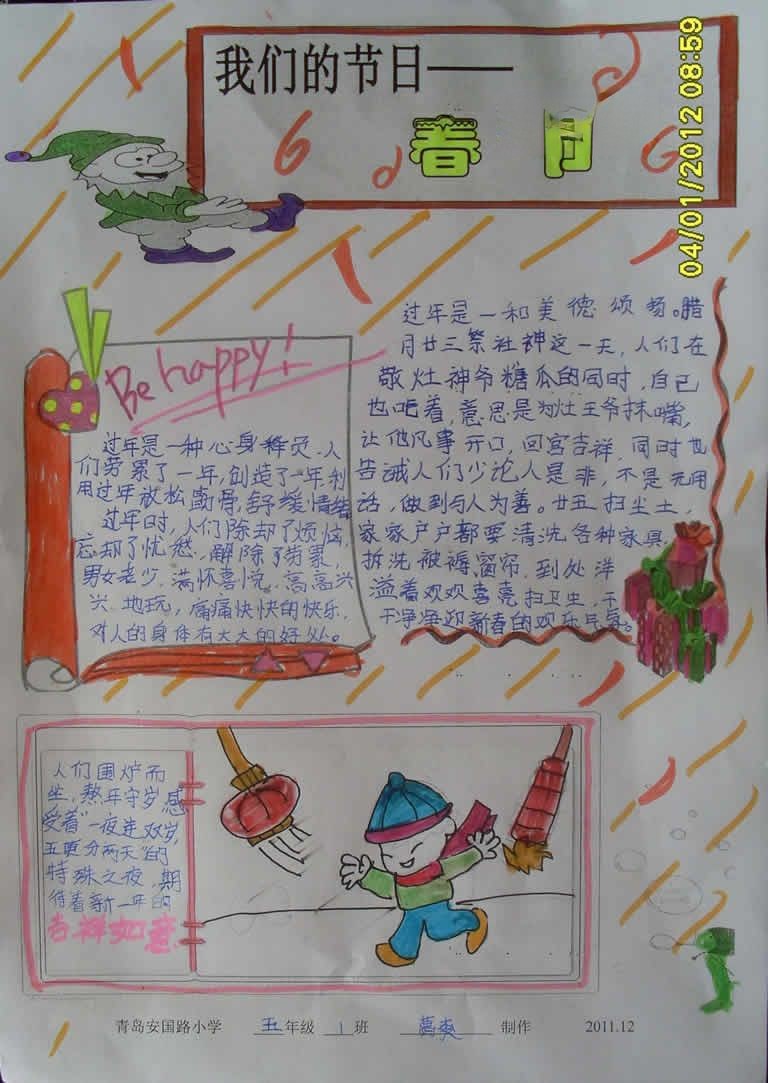 我们的节日——
春 节
04/01/2012 08:59
Be happy!
过年是一种心身释灵。人
们劳累了一年,创造了一年,利
用过年放松酌骨,舒缓情绪
过年时,人们除却了烦恼,
忘却了忧愁,解除了劳累,
男女老少,满怀喜悦,高高兴
兴地玩,痛痛快快的快乐,
对人的身体有大大的好处。
过年是一和美德颂扬。腊
月廿三祭社神这一天,人们在
敬灶神爷糖瓜的同时,自己
也吃着,意思是为灶王爷抹嘴,
让他凡事开口,回宫吉祥,同时也
告诫人们少论人是非,不是无用
话,做到与人为善。廿五扫尘土,
家家户户都要清洗各种家具,
拆洗被褥、窗帘,到处洋
溢着欢欢喜喜扫卫生,干
干净净迎新春的欢乐气氛。
人们围炉而
坐,熬年守岁,感
受着"一夜连双岁,
五更分两天"的
特殊之夜,期
待着新一年的
吉祥如意.
青岛安国路小学 五年级 1班 葛爽 制作 2011.12